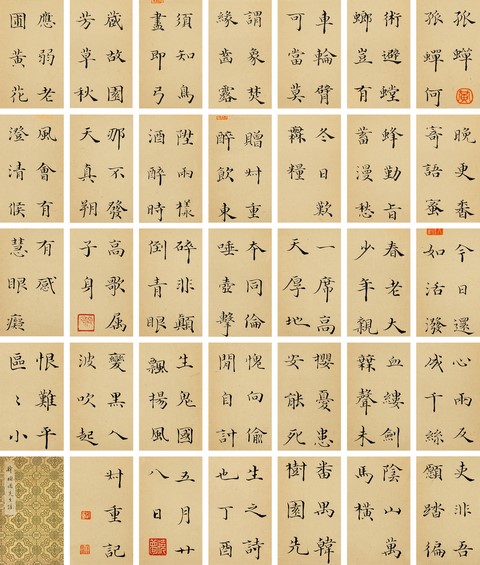 孤蟬
孤蟬何
術避螳
螂豈有
車輪臂
可當莫
謂象焚
緣齒露
須知鳥
盡即弓
歲故園
芳草秋
應弱老
圃黃花
晚更香
寄語蜜
蜂勤旨
蓄漫愁
冬日歎
糧
贈艸重
醉飲東
陞兩樣
酒醉時
那不發
天真朔
風會有
澄清候
今日還
如活潑
春老大
少年親
一席高
天厚地
本同倫
唾壺擊
碎非顛
倒青眼
高歌属
子身
有感
慧眼癡
心雨及
成千絲
血縷劍
聲未
攖憂患
安能死
愧向偷
閒自計
生鬼國
飄揚風
變黑入
波吹起
恨難平
區〻小
吏非吾
願踏徧
陰山萬
馬橫
番禺韓
樹園先
生之詩
也丁酉
五月廿
八日
艸重記